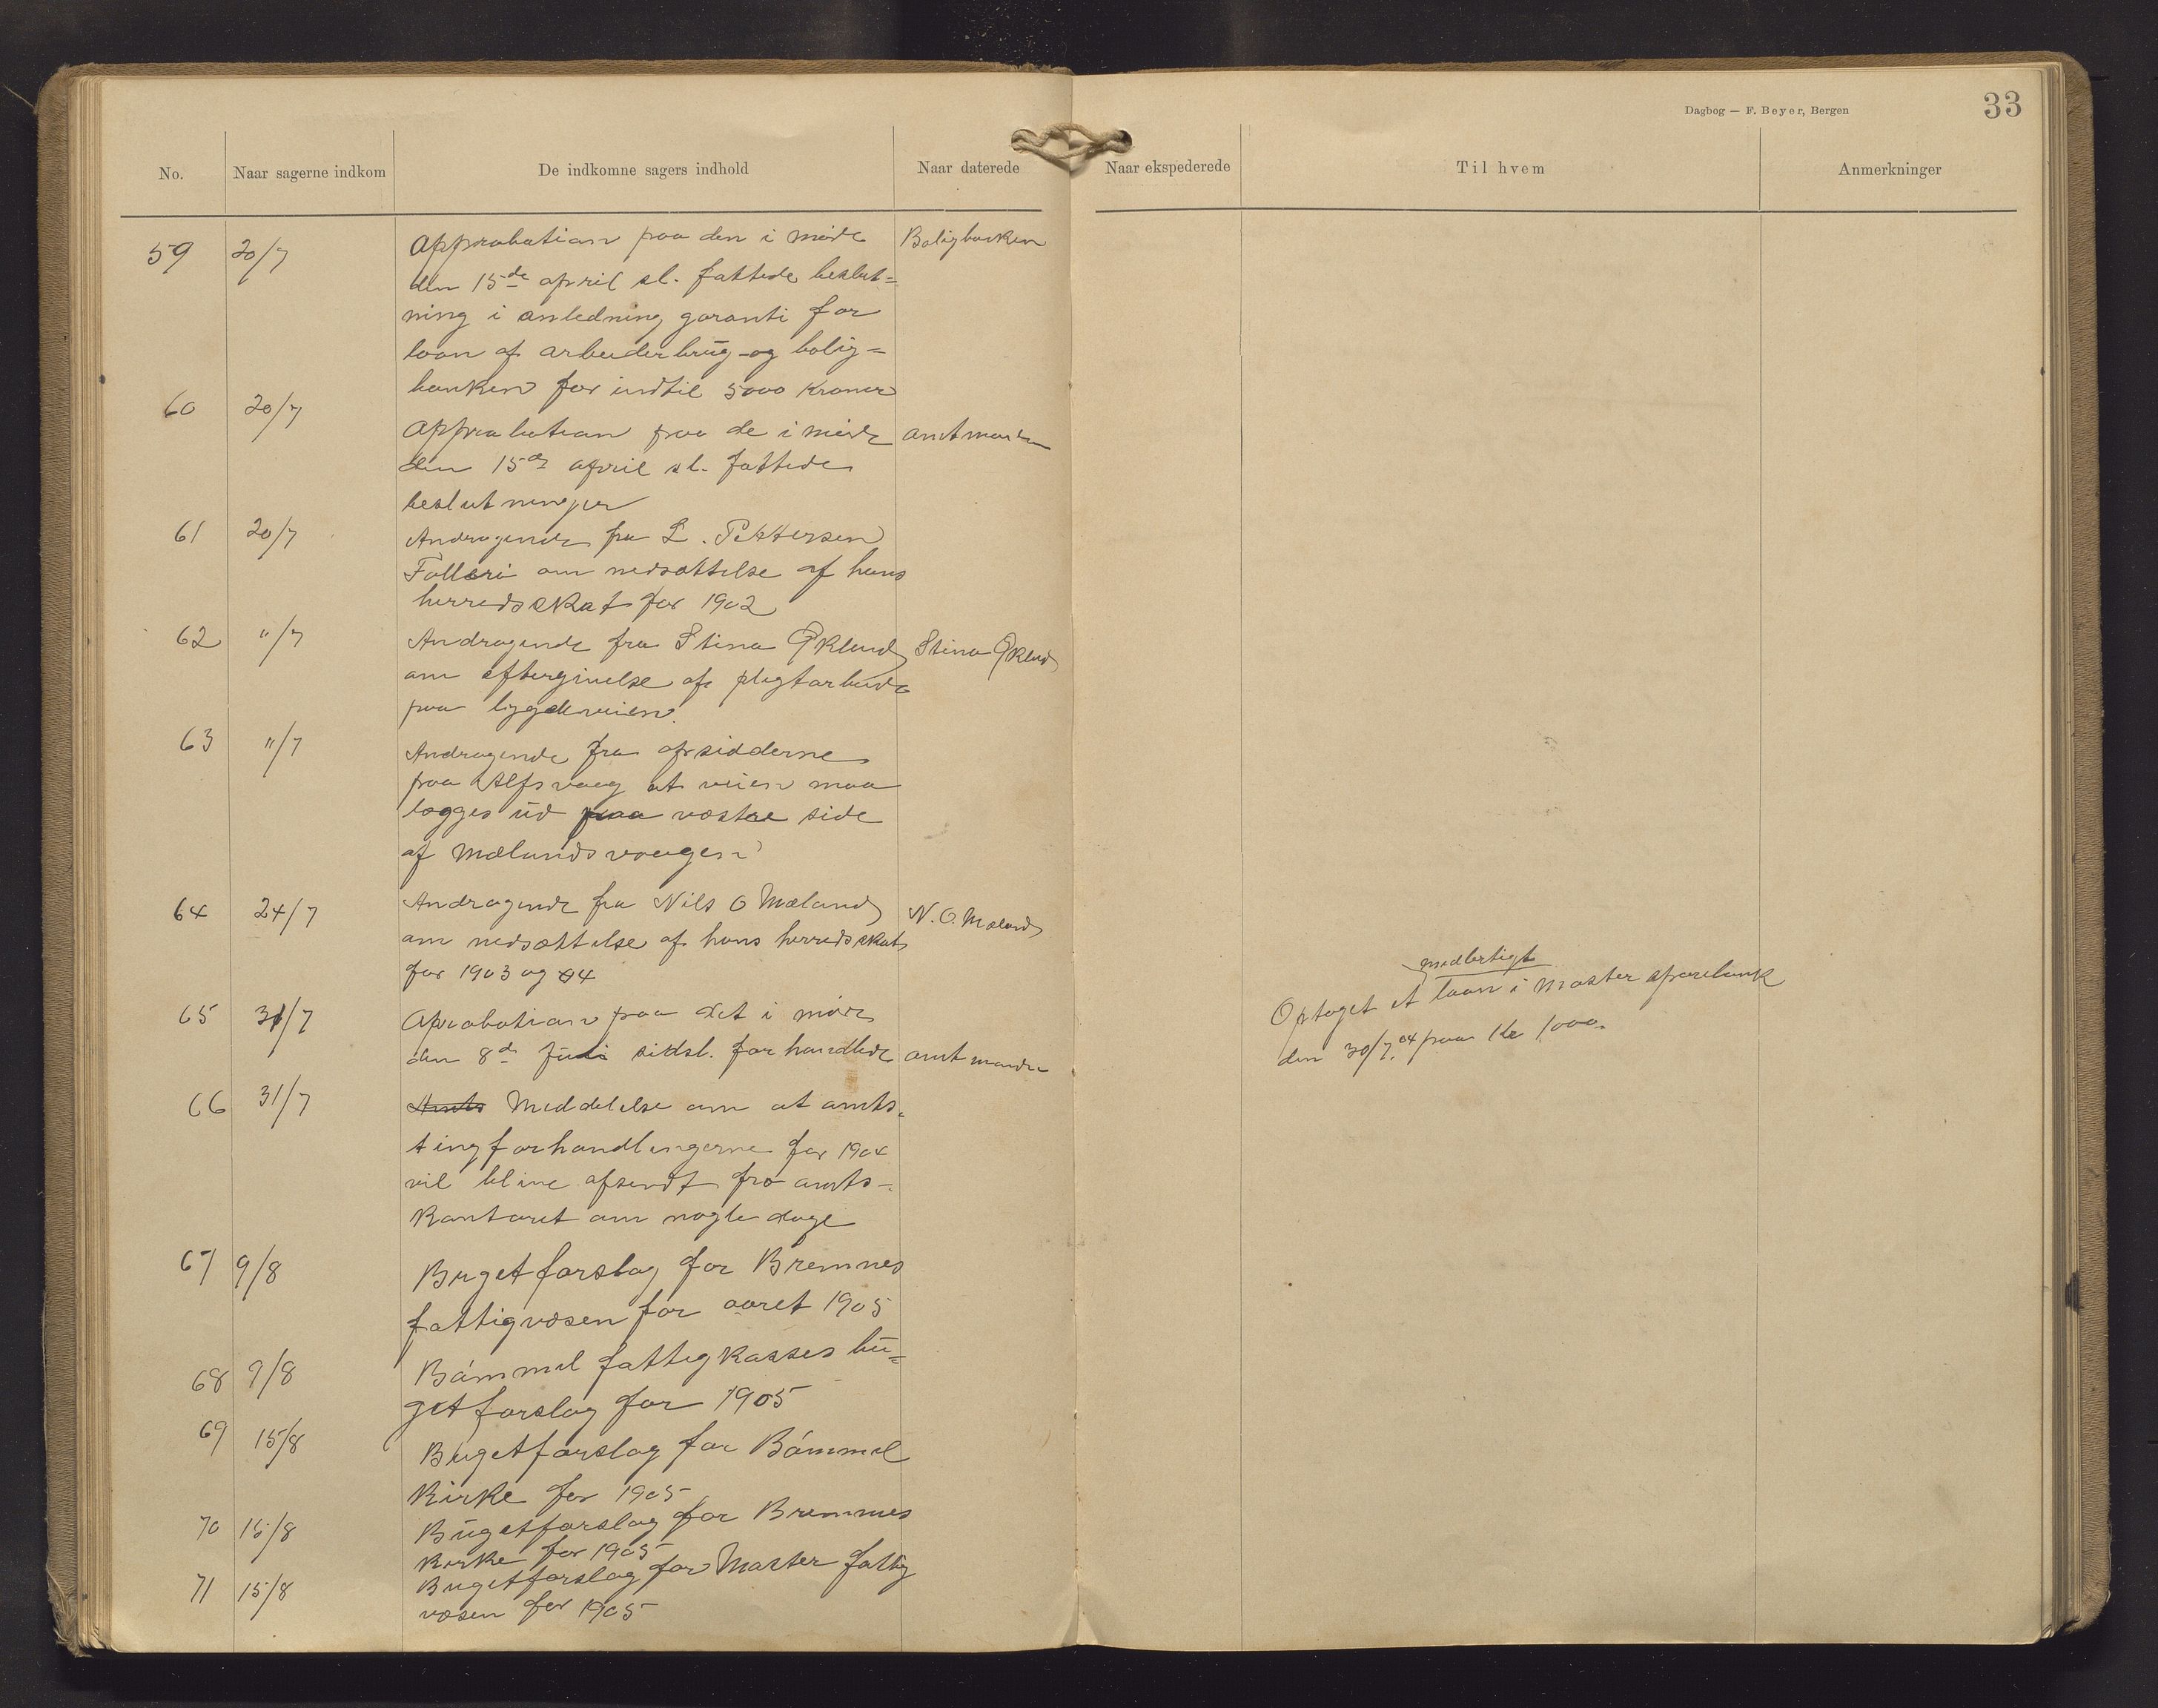 Dagbog — F. Beyer, Bergen
33
No. Naar sagerne indkom De indkomne sagers indhold Naar daterede Naar ekspederede Til hvem Anmerkninger
59 20/7 Approbation paa den i møde Boligbanken
den 15de april sl. fattede beslut=
ning i anledning garanti for
laan af arbeiderbrug- og bolig=
banken for indtil 5000 kroner
60 20/7
Approbation paa de i møde amtmanden
den 15de april sl. fattede
beslutninger
61 20/7 Andragende fra L. Pettersen
Folleri om nedsættelse af hans
herredsskat for 1902
62 "/7 Andragende fra Stina Eklund Stina Eklund
om eftergivelse af pligtarbeide
paa bygdeveien.
63 "/7 Andragende fra opsidderne
paa Alfsvaag at veien maa
lægges ud paa vestre side
af Mælandsvaagen
64 24/7 Andragende fra Nils O Mæland N. O. Mæland
om nedsættelse af hans herredsskat
for 1903 og 04
65 31/7 Aprobation paa det i møde
den 8de juli sidstl. forhandlede amtmanden
midlertigt
Optaget et laan i Moster sparebank
den 30/7.04 paa Kr 1000.
66 31/7 Amts Meddelelse om at amts=
tingforhandlingerne for 1904
vil blive afsendt fra amts-
kontoret om nogle dage
67 9/8 Bugetforslag for Bremnes
fattigvæsen for aaret 1905
68 9/8 Bømmel fattigkasses bu=
getforslag for 1905
69 15/8 Bugetforslag for Bømmel
Kirke for 1905
70 15/8 Bugetforslag for Bremnes
Kirke for 1905
71 15/8 Bugetforslag for Moster fattig
væsen for 1905